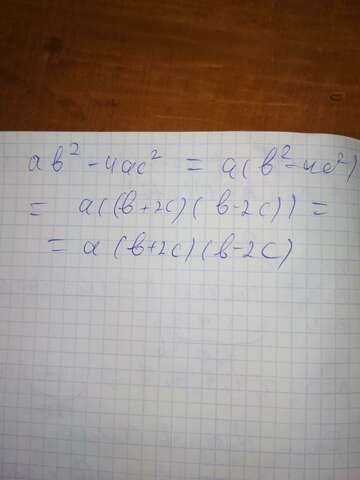 ab² - 4ac² = a(b² - 4c²)
= a((b+2c)(b-2c)) =
= a(b+2c)(b-2c)